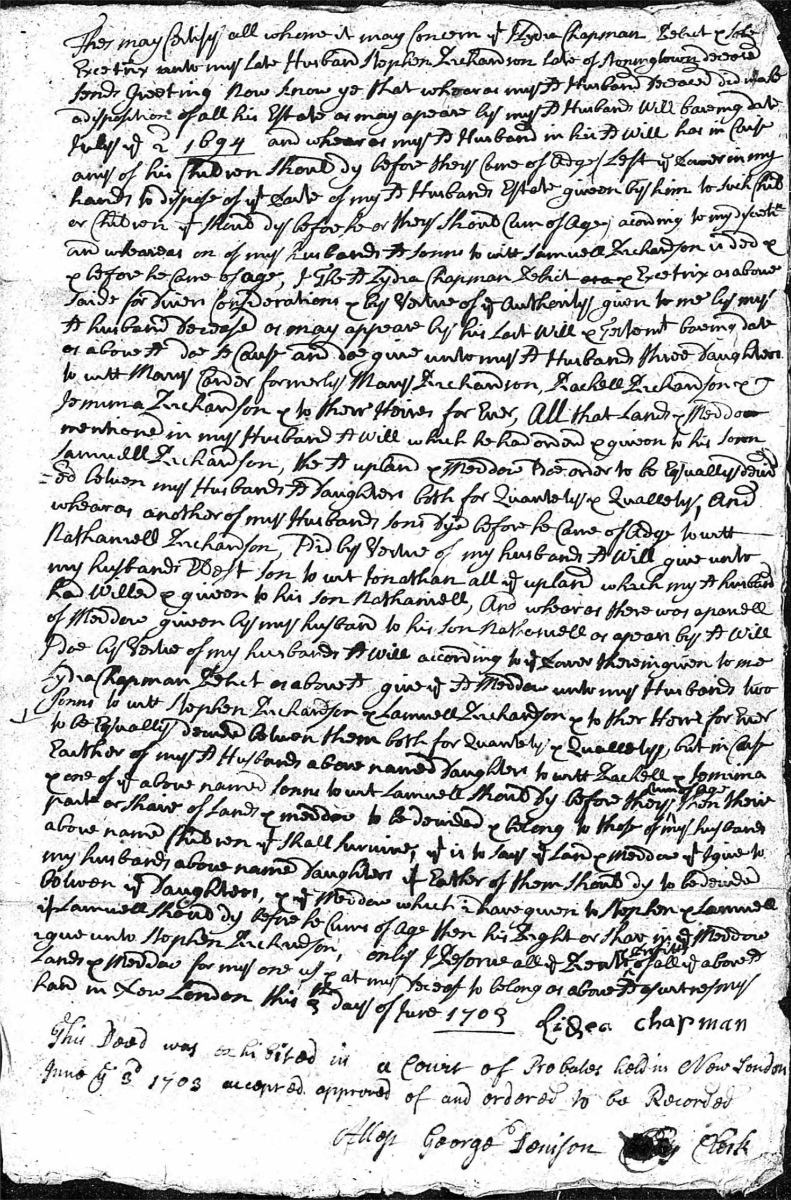 Thes may Certify all whome it may Concern yt Lydia Chapman Relict & sole
Excetrix unto my Late Husband Stephen Richardson late of Stoningtown deceased
sends Greeting Now know ye that whear as my sd Husband deceased did make
a disposition of all his Estate as may apeare by my sd Husbands Will baring date
July ye 2 1694 and whear as my sd Husband in his sd Will has in Case
any of his Children Should dy before they Came of Adge Left ye power in my
hands to dispose of ye parte of my sd Husbands Estate given by him to such Child
or Children yt should dy before he or they should Cum of Age, acording to my discretn
and wheareas on of my husbands sd sonns to witt Samuell Richardson is ded
& before he Came of age, I the sd Lydia Chapman Relict & Excetrix as above
saide for divers Considerations & by Vertue of ye Authority given to me by my
sd husband deceased as may appeare by his Last Will & Testemt baring date
as above sd doe and doe give unto my sd Husbands three Daughters
to witt Mary Carder formerly Mary Richardson, Rachell Richardson &
Jemima Richardson & to their Heires for Ever, All that Land & Meddow
mentioned in my Husbands sd Will which he had ordred & given to his sonn
Samuell Richardson, the sd upland & Meddow I doe order to be Equally devid
=ed betwen my Husbands sd Daughters both for Quantety & Quallety, And
whearas another of my Husbands sons dyed before he Came of Adge to witt
Nathaniell Richardson, I did by Vertue of my husbands sd Will give unto
my husbands Eldest son to wit Jonathan all ye upland which my sd husband
had Willed & given to his son Nathaniell, And whear as there was a parsell
of Meddow given by my husband to his son Nathaniell as apears by sd Will
I doe by Vertue of my husbands sd Will according to ye power therein given to me
Lydia Chapman Relict as above sd, give ye sd Meddow unto my Husbands two
sonns to witt Stephen Richardson & Lamuell Richardson & to ther Heirs for Ever
to be Equally devided betwen them both for Quantety & Quallety, but in Case
Eather of my sd Husbands above named Daughters to witt Rachell & Jemima
& one of ye above named sonns to wit Lamuell should dy before they Cum of age then their
part or share of Land & meddow to be devided & belong to those of my husbands
above named Children yt shall survive, yt is to say ye Land & Meddow yt I give to
my husbands above named Daughters if Eather of them should dy to be devided
betwen ye Daughters, & ye Meddow which i have given to Stephen & Lamuell
if Lamuell should dy before he Cums of Age then his Right or share in ye Meddow
i give unto Stephen Richardson, only I Reserve all ye of all ye above sd
Lands & Meddow for my one us & at my deceas to belong as above sd as witnes my
hand in New London this 3 day of June 1703 Lidea Chapman
This Deed was exhibited in a Court of Probates held in New London
June ye 3d 1703 accepted approved of and ordered to be Recorded
Attest George Denison Clerk